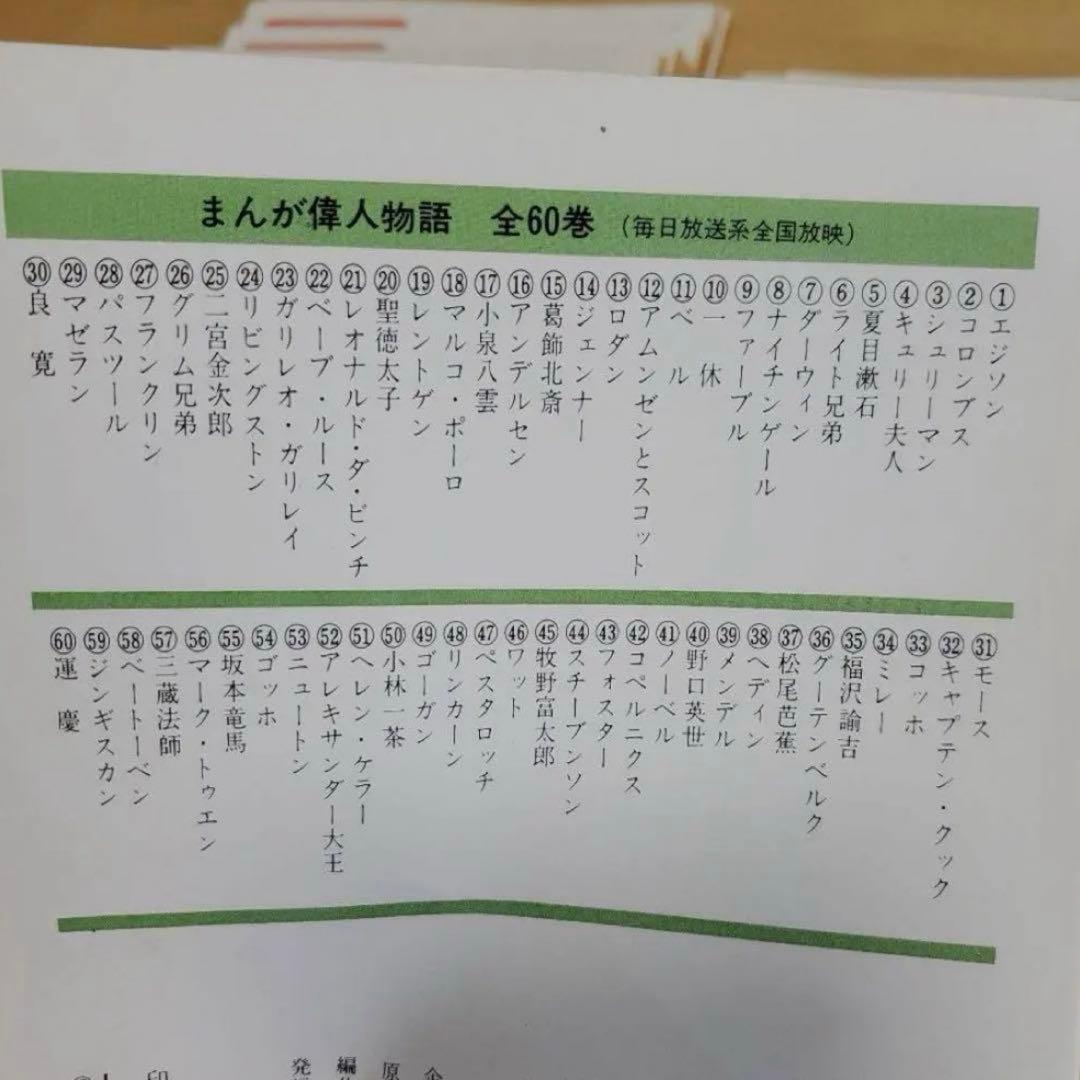 まんが偉人物語 全60巻 (毎日放送系全国放映)
①エジソン
②コロンブス
③シュリーマン
④キュリー夫人
⑤夏目漱石
⑥ライト兄弟
⑦ダーウィン
⑧ナイチンゲール
⑨ファーブル
⑩一休
⑪ベル
⑫アムンゼンとスコット
⑬ロダン
⑭ジェンナー
⑮葛飾北斎
⑯アンデルセン
⑰小泉八雲
⑱マルコ・ポーロ
⑲レントゲン
⑳聖徳太子
㉑レオナルド・ダ・ビンチ
㉒ベーブ・ルース
㉓ガリレオ・ガリレイ
㉔リビングストン
㉕二宮金次郎
㉖グリム兄弟
㉗フランクリン
㉘パスツール
㉙マゼラン
㉚良寛
㉛モース
㉜キャプテン・クック
㉝コッホ
㉞ミレー
㉟福沢諭吉
㊱グーテンベルク
㊲松尾芭蕉
㊳ヘディン
㊴メンデル
㊵野口英世
㊶ノーベル
㊷コペルニクス
㊸フォスター
㊹スチーブンソン
㊺牧野富太郎
㊻ワット
㊼ペスタロッチ
㊽リンカーン
㊾ゴーガン
㊿小林一茶
51ヘレン・ケラー
52アレキサンダー大王
53ニュートン
54ゴッホ
55坂本竜馬
56マーク・トゥエン
57三蔵法師
58ベートーベン
59ジンギスカン
60運慶
企
原
編
発
印